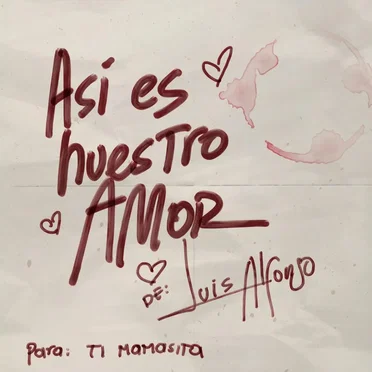 Así es
nuestro
AMOR
DE: Luis Alfonso
Para: TI MAMASITA